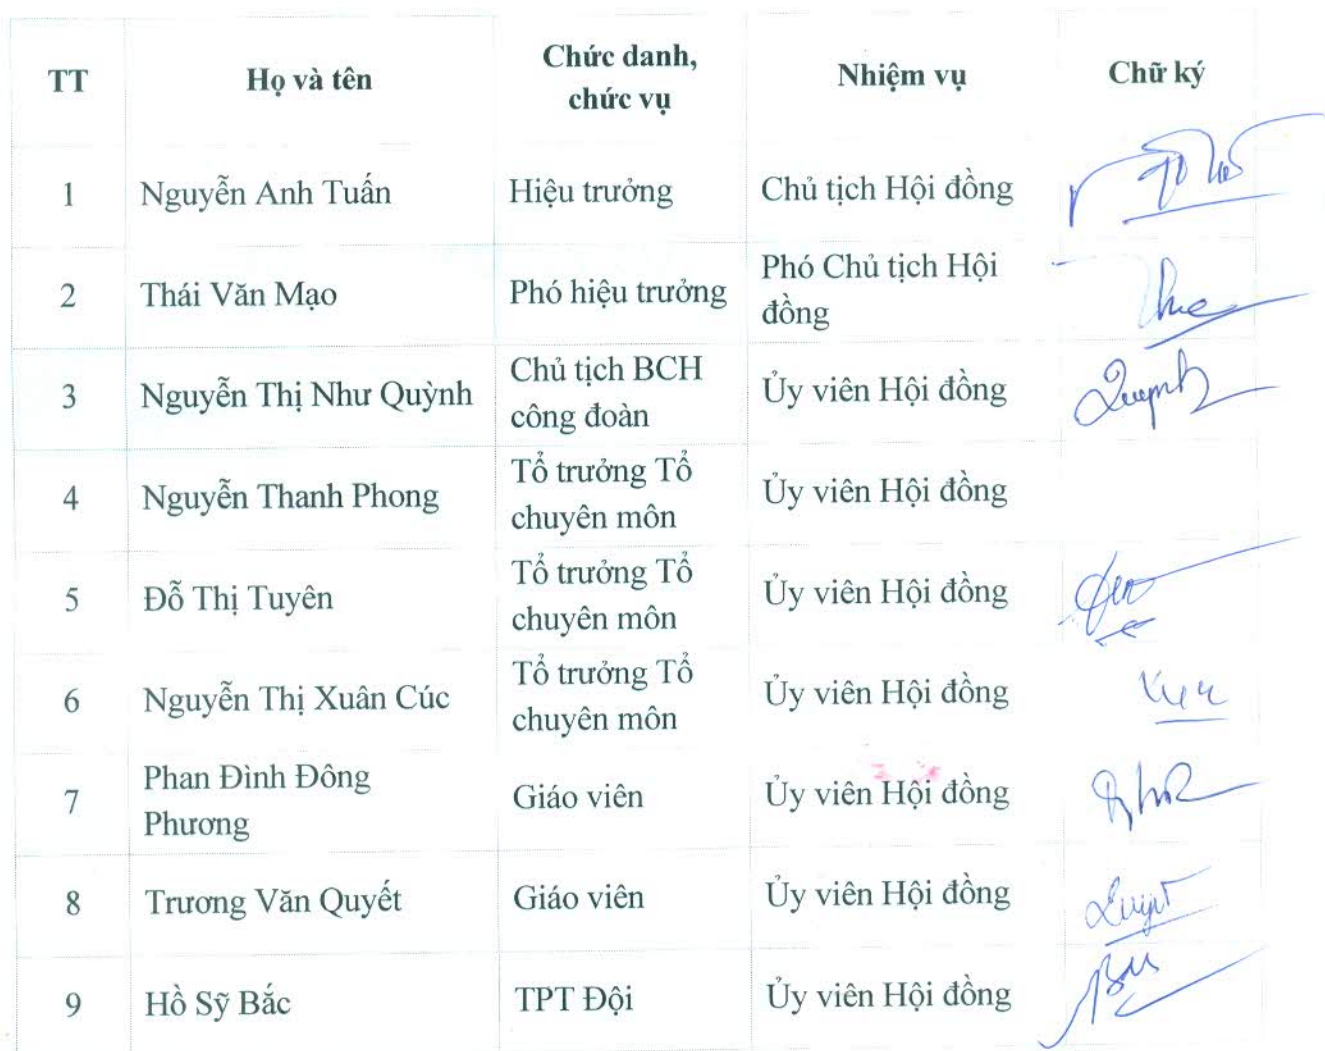 TT Họ và tên Chức danh, chức vụ Nhiệm vụ Chữ ký
1 Nguyễn Anh Tuấn Hiệu trưởng Chủ tịch Hội đồng
2 Thái Văn Mạo Phó hiệu trưởng Phó Chủ tịch Hội đồng
3 Nguyễn Thị Như Quỳnh Chủ tịch BCH công đoàn Ủy viên Hội đồng Quỳnh
4 Nguyễn Thanh Phong Tổ trưởng Tổ chuyên môn Ủy viên Hội đồng
5 Đỗ Thị Tuyên Tổ trưởng Tổ chuyên môn Ủy viên Hội đồng
6 Nguyễn Thị Xuân Cúc Tổ trưởng Tổ chuyên môn Ủy viên Hội đồng
7 Phan Đình Đông Phương Giáo viên Ủy viên Hội đồng
8 Trương Văn Quyết Giáo viên Ủy viên Hội đồng
9 Hồ Sỹ Bắc TPT Đội Ủy viên Hội đồng